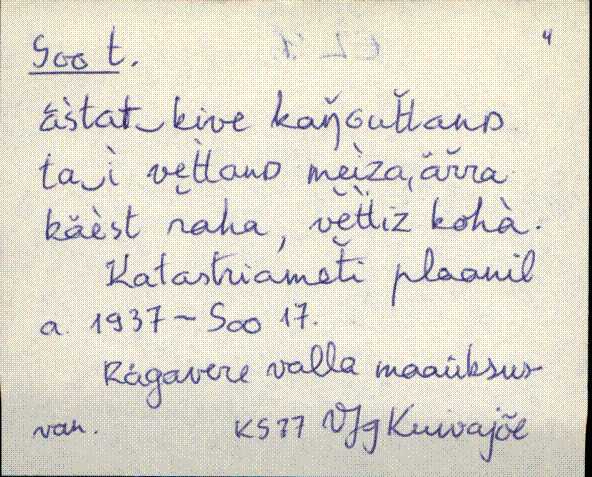 Soo t.
4
ästat‿kive kaŋ̆guťtanD
ta‿ì veťtanD mèiza, ärra
käèst raha, vĕťtiz kohà.
Katastriameti plaanil
a. 1937 – Soo 17.
Rägavere valla maaüksus
van. KS77 VJg Kuivajõe